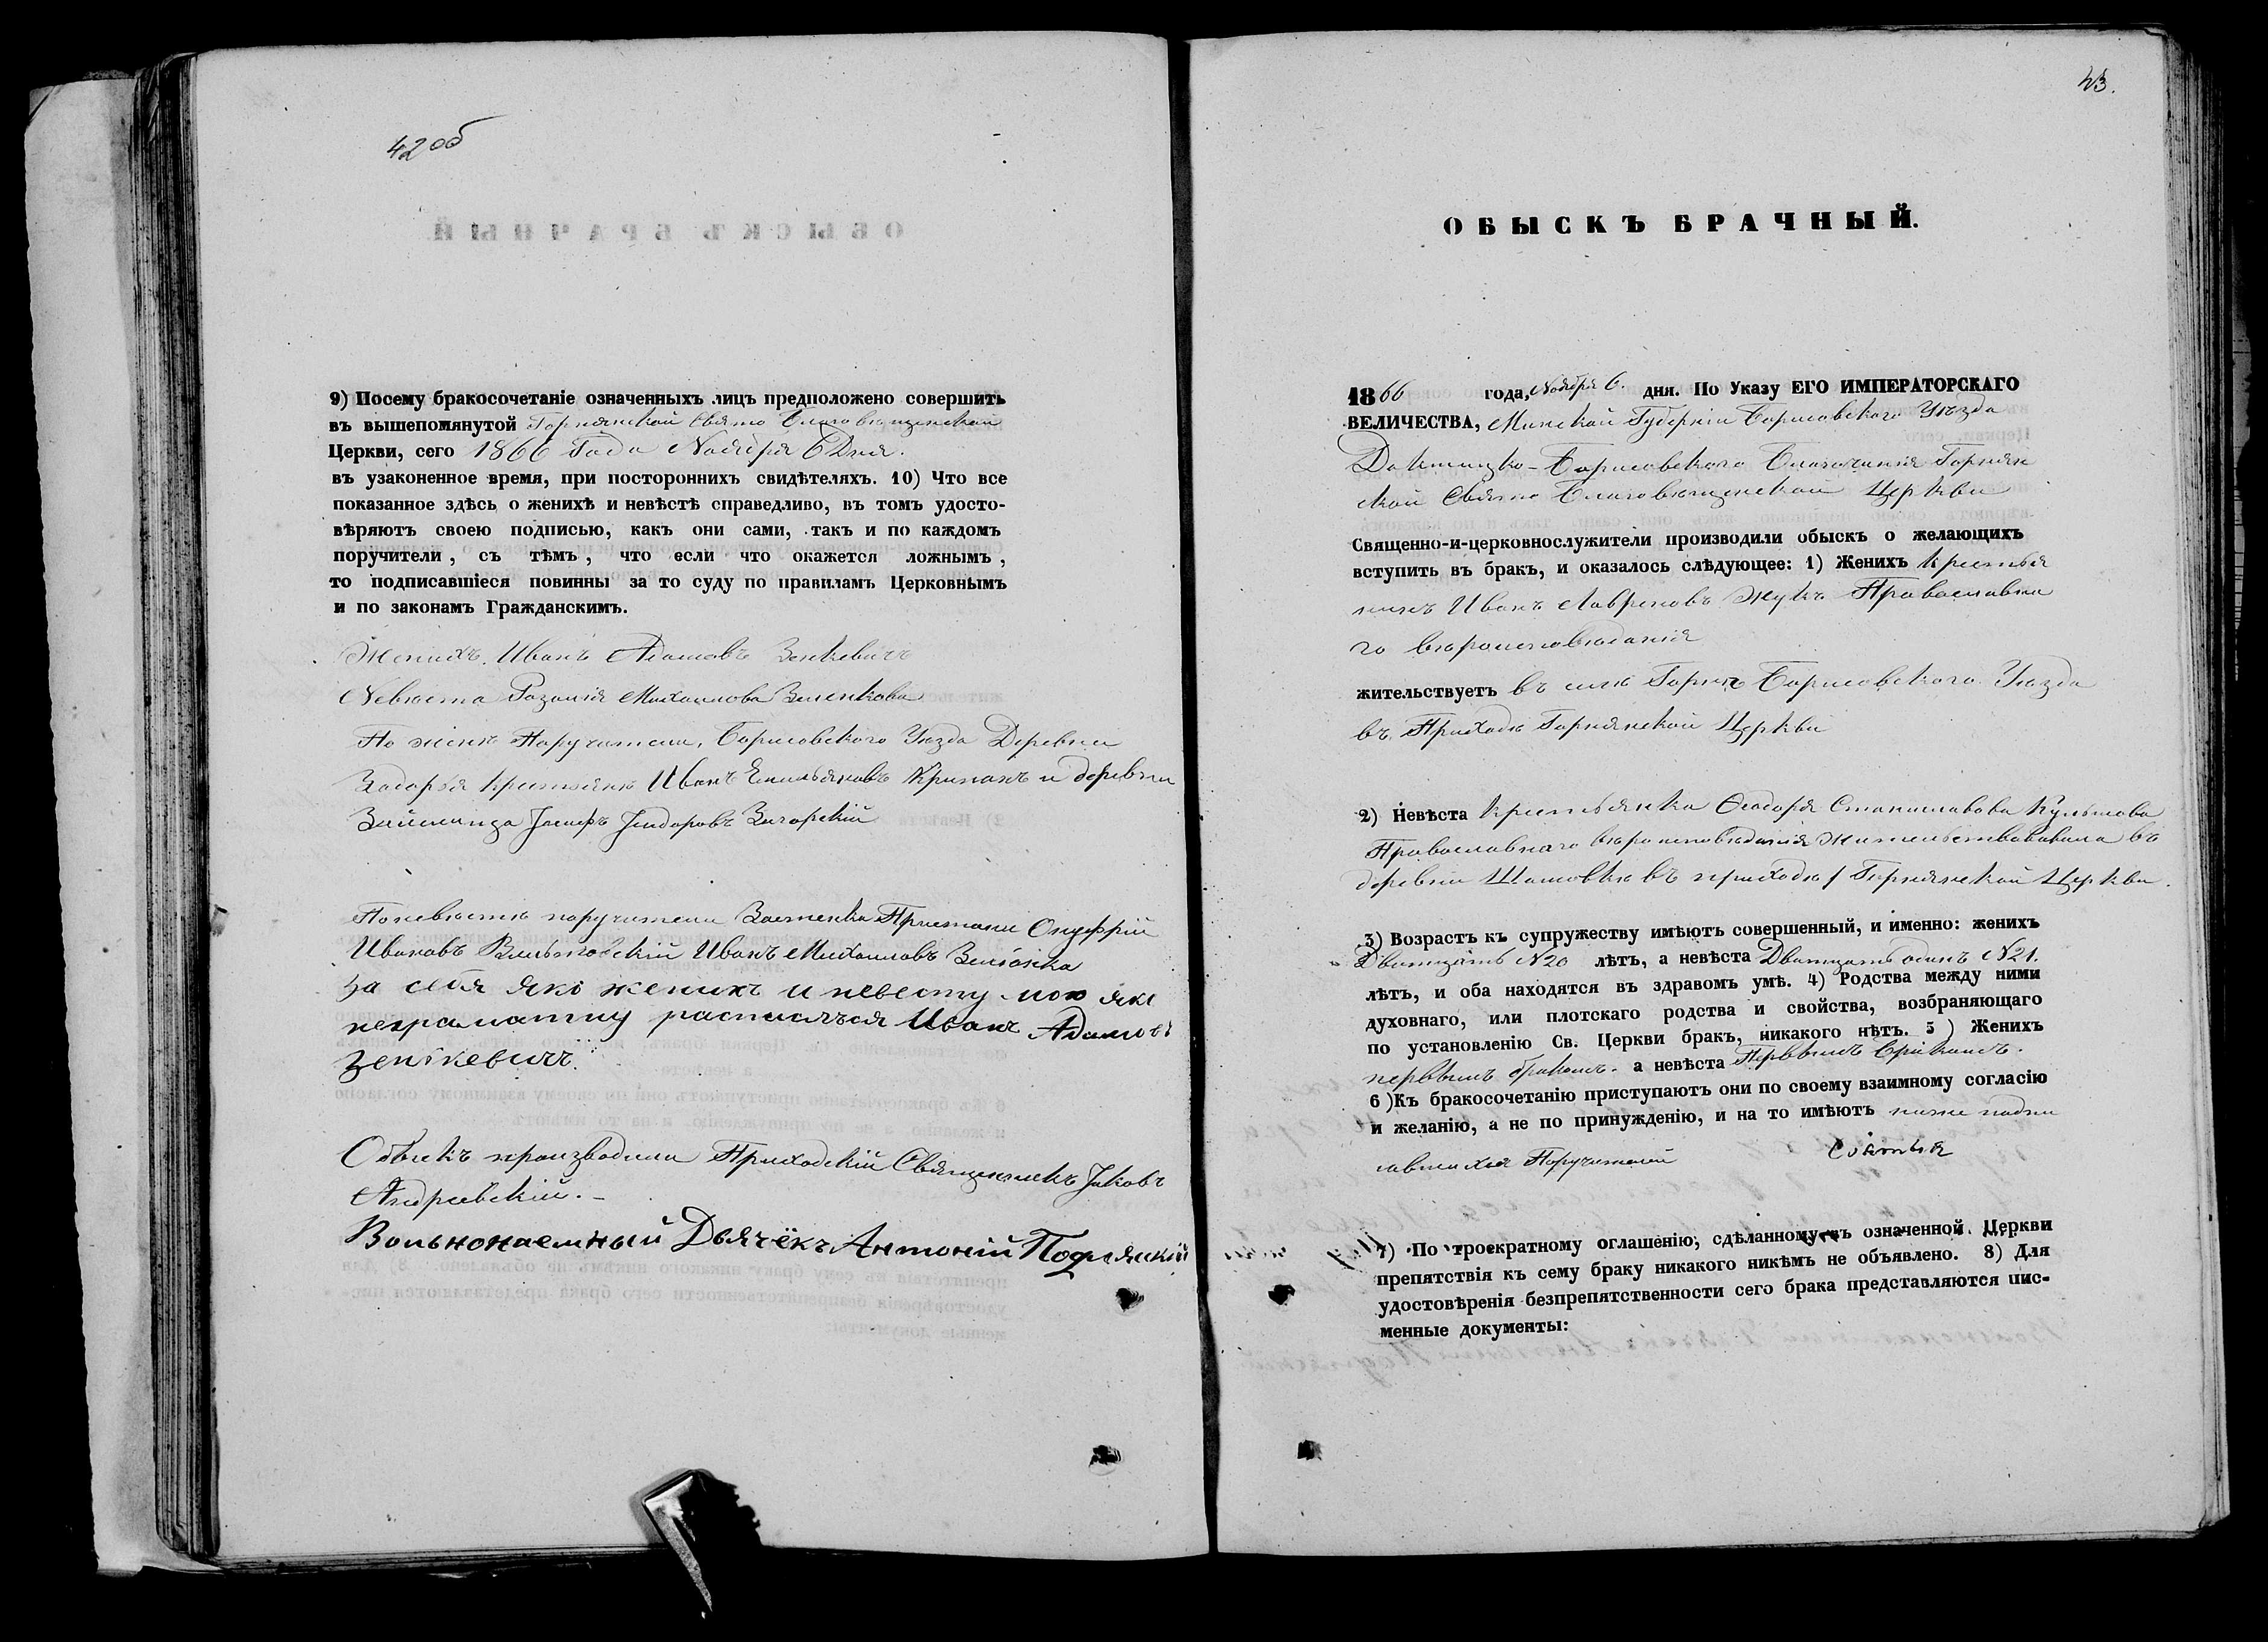 42 об
9) Посему бракосочетаніе означенныхъ лицъ предположено совершить
въ вышепомянутой Горнянской Свято Благовѣщенской
Церкви, сего 1866 Года Ноября 6 Дня.
въ узаконенное время, при постороннихъ свидѣтеляхъ. 10) Что все
показанное здѣсь о женихѣ и невѣстѣ справедливо, въ томъ удосто-
вѣряютъ своею подписью, какъ они сами, такъ и по каждомъ
поручители, съ тѣмъ, что если что окажется ложнымъ,
то подписавшіеся повинны за то суду по правиламъ Церковнымъ
и по законамъ Гражданскимъ.
Женихъ Иванъ Адамовъ Зенкевичъ
Невѣста Розалія Михаилова
По жених Поручители, Борисовскаго Уѣзда Деревни
Задорья Иванъ Емильяновъ и деревни
Іосифъ Загорскій
По невѣстѣ поручители Застенка Пристани Онуфрій
Ивановъ Иванъ Михаиловъ
за себя яко женихъ и невесту мою яко
неграматну расписался Иванъ Адамовъ
Зенкевичъ.
Обыскъ производили Приходскій Священникъ Іаковъ
Андреевскій.
Вольнонаемный Дьячёкъ Антоній
43.
ОБЫСКЪ БРАЧНЫЙ.
1866 года, Ноября 6. дня. По Указу ЕГО ИМПЕРАТОРСКАГО
ВЕЛИЧЕСТВА, Минской Губерніи Борисовскаго Уѣзда
Докшицко-Борисовскаго Благочинія Горнян
ской Свято Благовѣщенской Церкви
Священно-и-церковнослужители производили обыскъ о желающихъ
вступить въ бракъ, и оказалось слѣдующее: 1) Женихъ Крестья
нинъ Иванъ Лавреновъ Жукъ Православна
го вѣроисповѣданія
жительствуетъ въ селѣ Борисовскаго Уѣзда
въ Приходѣ Горнянской Церкви
2) Невѣста крестьянка Ѳеодора Станиславова
Православнаго вѣроисповѣданія въ
деревни въ приходѣ Горнянской Церкви.
3) Возрастъ къ супружеству имѣютъ совершенный, и именно: женихъ
Дватцать №20 лѣтъ, а невѣста Дватцать одинъ №21.
лѣтъ, и оба находятся въ здравомъ умѣ. 4) Родства между ними
духовнаго, или плотскаго родства и свойства, возбраняющаго
по установленію Св. Церкви бракъ, никакого нѣтъ. 5) Женихъ
первымъ бракомъ. а невѣста Первымъ бракомъ.
6) Къ бракосочетанію приступаютъ они по своему взаимному согласію
и желанію, а не по принужденію, и на то имѣютъ ниже подпи
савшихся Поручителей
7) По троекратному оглашенію, сдѣланному въ означенной Церкви
препятствія къ сему браку никакого никѣмъ не объявлено. 8) Для
удостовѣренія безпрепятственности сего брака представляются пис-
менные документы: